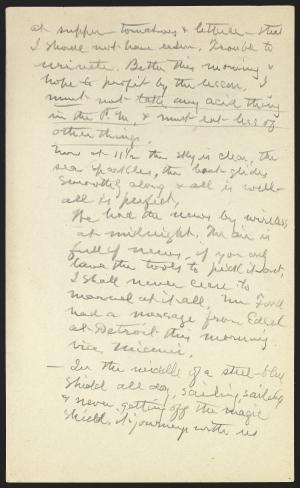 at supper - tomatoes & lettuce - that
I should not have eaten. Trouble to
urinate. Better this morning &
hope to profit by the lesson. I
must not take any acid thing
in the P.M. & must eat less of
other things.
Now at 11½ the sky is clear, the
sea sparkles, the boat glides
smoothly along & all is well -
all is perfect,
We had the news by wireless
at midnight. The air is
full of news, if you only
have the tools to pick it out,
I shall never cease to
marvel at it all. Mr Ford
had a message from Edsel
at Detroit this morning
via Miami.
- In the middle of a steel-blue
shield all day, sailing, sailing
& never getting off the magic
shield, it journeys with us